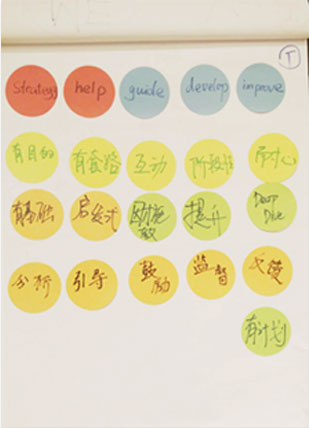 T
Strategy help guide develop improve
有目的 有套路 互动 阶段性 耐心
有基础 启发式 因材施教 提升 Deep Dive
分析 引导 鼓励 监督 反馈
有计划